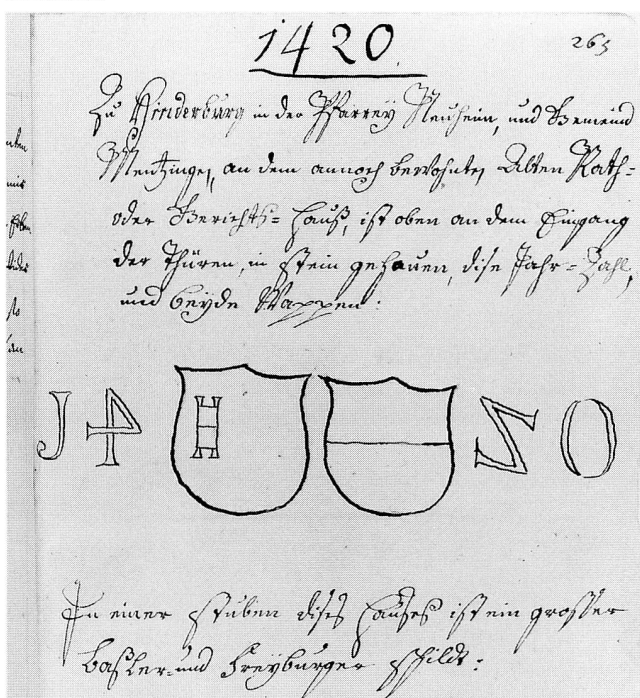 1420.
263
Zu Hinderburg in der Pfarrey Neuheim, und Gemeind
Mentzingen, an dem annoch bewohnten Alten Rath-
oder Gerichts-Hauß, ist oben an dem Eingang
der Thüren, in Stein gehauen, dise Jahr-Zahl,
und beyde Wappen:
J4 20
In einer Stuben dises Hauses ist ein grosser
Baßler- und Freyburger Schildt: